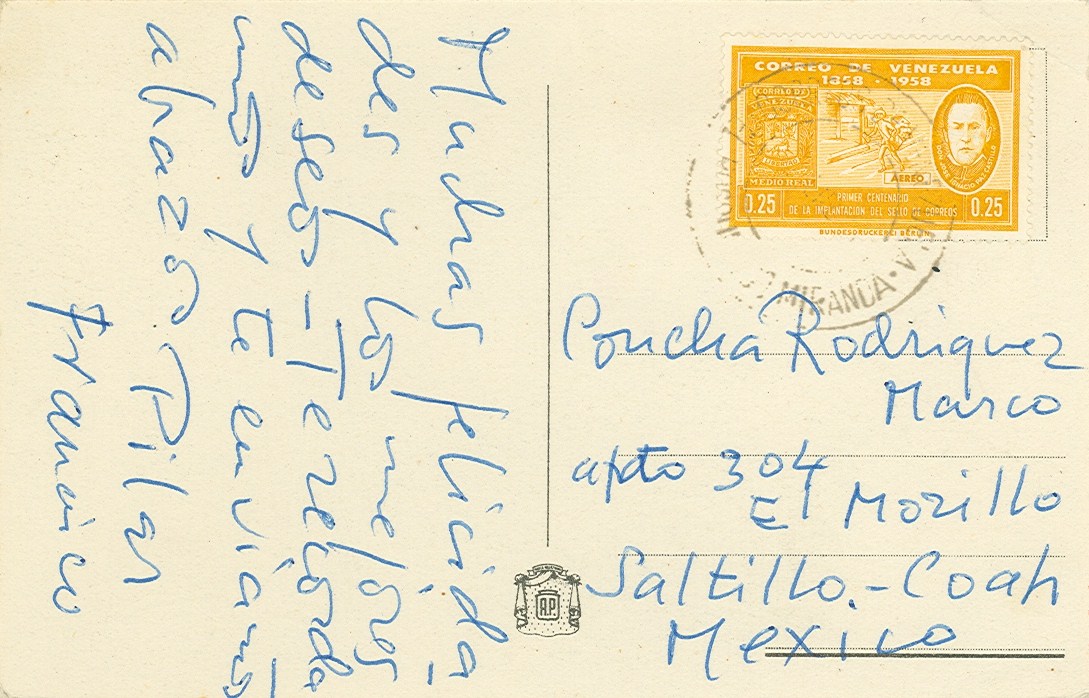 Muchas felicida-
des y los mejores
deseos - Te recorda-
mos y te enviamos
abrazos Pilar
Francisco
CORREO DE VENEZUELA
1858 - 1958
CORREO DE
VENEZUELA
LIBERTAD
MEDIO REAL
AEREO
DON JOSE IGNACIO PAZ CASTILLO
0.25
PRIMER CENTENARIO
DE LA IMPLANTACION DEL SELLO DE CORREOS
0.25
BUNDESDRUCKEREI BERLIN
MIRANDA
Concha Rodriguez
Marco
apto 304
El Morillo
Saltillo.- Coah
Mexico
A.P.